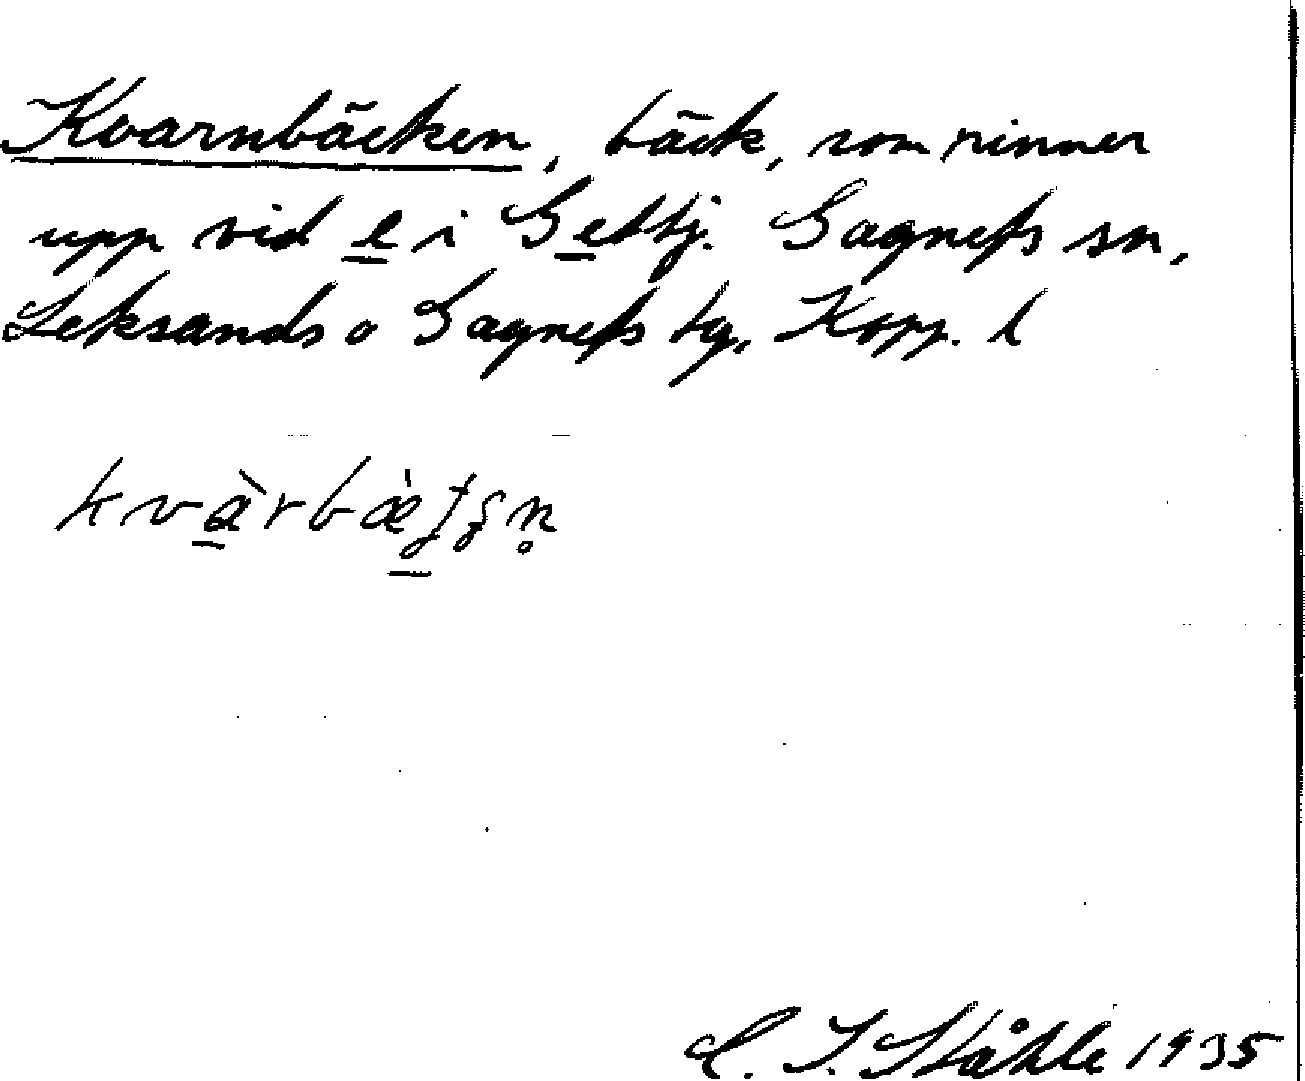 Kvarnbäcken, bäck, som rinner
upp vid e i Getbj. Gagnefs sn,
Leksands o Gagnefs tg, Kopp. l
kvàrbæ̀
C. I. Ståhle 1935